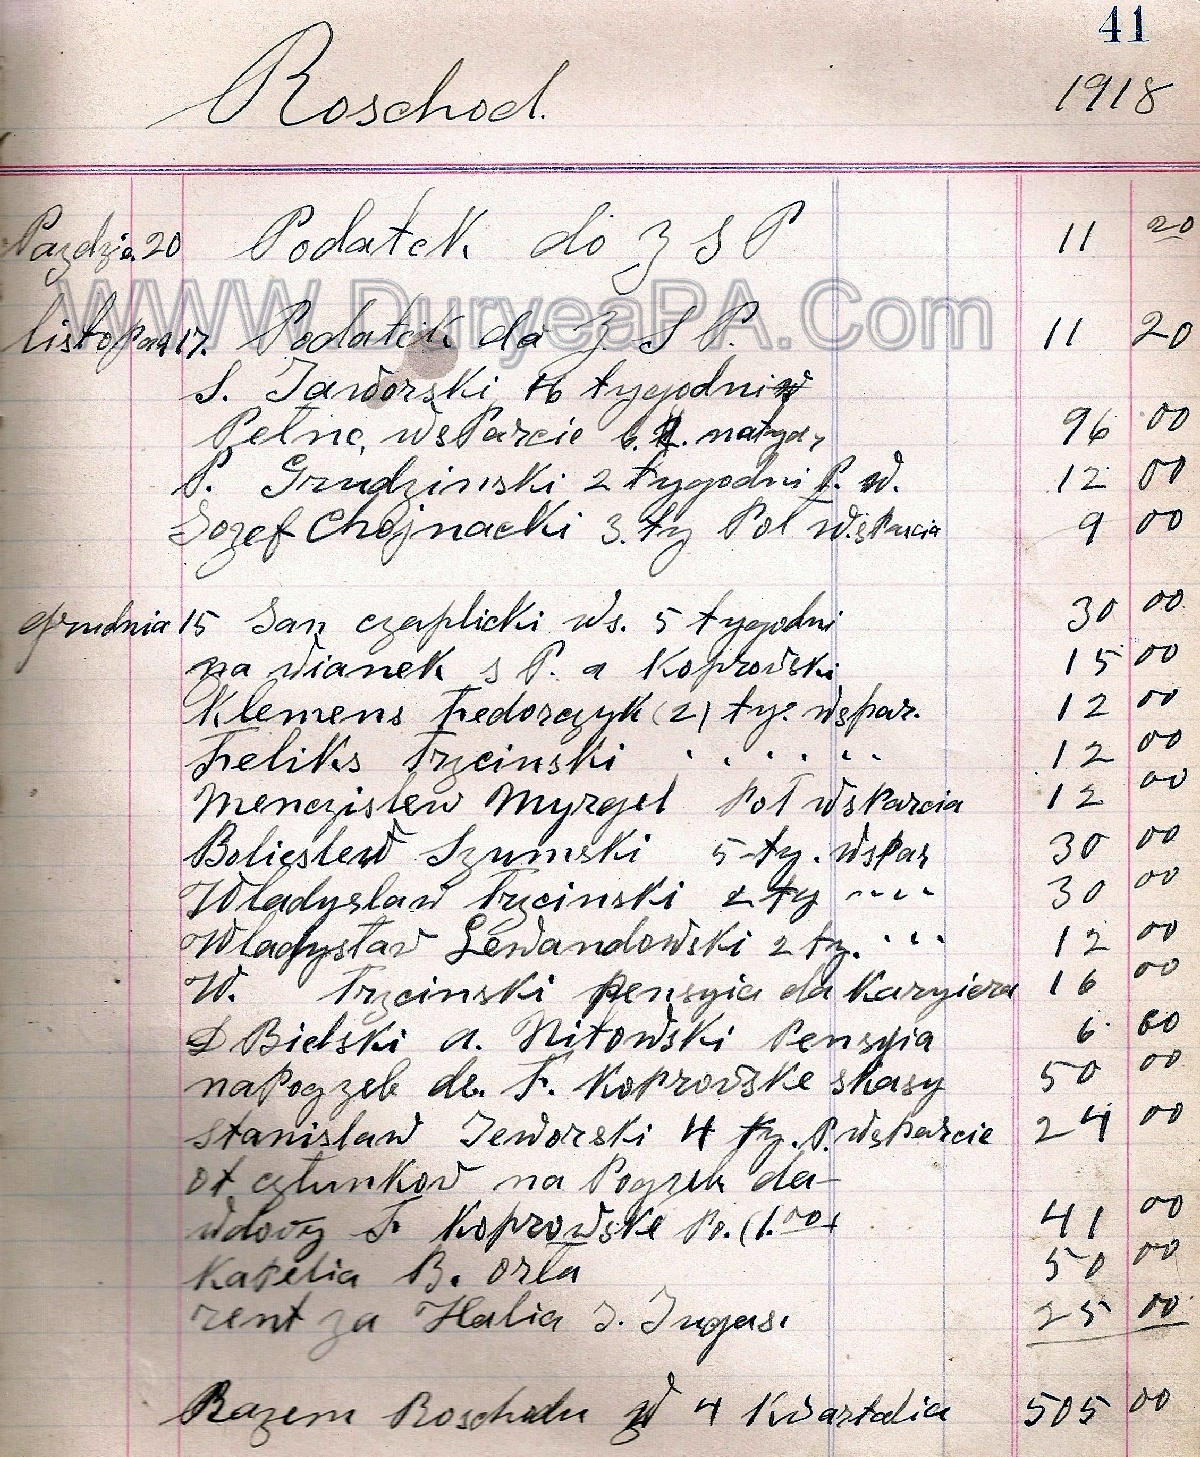 41
Roschod. 1918
Pazdzie. 20 Podatek do Z S P 11 20
WWW.DuryeaPA.Com
listopad 17. Podatek do Z. S P. 11 20
S. Jaworski 16 tygodniw
Pełne wsParcie 6. na tyd, 96 00
P. Grudzinski 2 tygodni P. w. 12 00
Jozef Chojnacki 3. ty Poł w.sParcia 9 00
grudnia 15 Jan czaplicki ws. 5 tygodni 30 00
na wianek s P. a Koprowski 15 00
Klemens Fedorczyk (2) ty. wspar. 12 00
Feliks Trzcinski 12 00
Menczislew Myrgel Poł wsParcia 12 00
Boliesław Szumski 5 ty. wsPar 30 00
Wladyslaw Trzcinski 2 ty " " 30 00
Wladysław Lewandowski 2 ty. " " 12 00
W. Trzcinski pensyia da Karyiera 16 00
D Bielski a. Nitowski Pensyia 6. 60
na Pogrzeb de. F. Koprowske skasy 50 00
Stanislaw Jeworski 4 ty. P. wsParcie 24 00
ot człunkow na Pogrzeb da-
wdowy F Koprowske Po. (1.00) 41 00
Kapelia B. orła 50 00
rent za Halia J. 25 00
Razem Roschodu w 4 Kwartalia 505 00